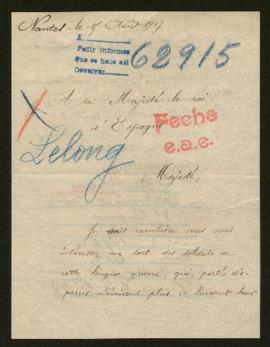 Nantes le 15 Août 1917
A
Pedir informes
que se hace asi
Devolver
62915
A sa Majesté le roi
d'Espagne
Fecho
e.a.e.
Lelong
Majesté,
Je sais combien vous vous
intéressez au sort des soldats de
cette longue guerre, qui, portés dis-
parus n'écrivent plus et laissent leurs